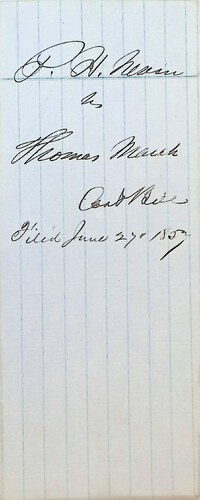 P. H. Morri
vs
Thomas Mauk
Cost Bill
Filed June 27th 1857